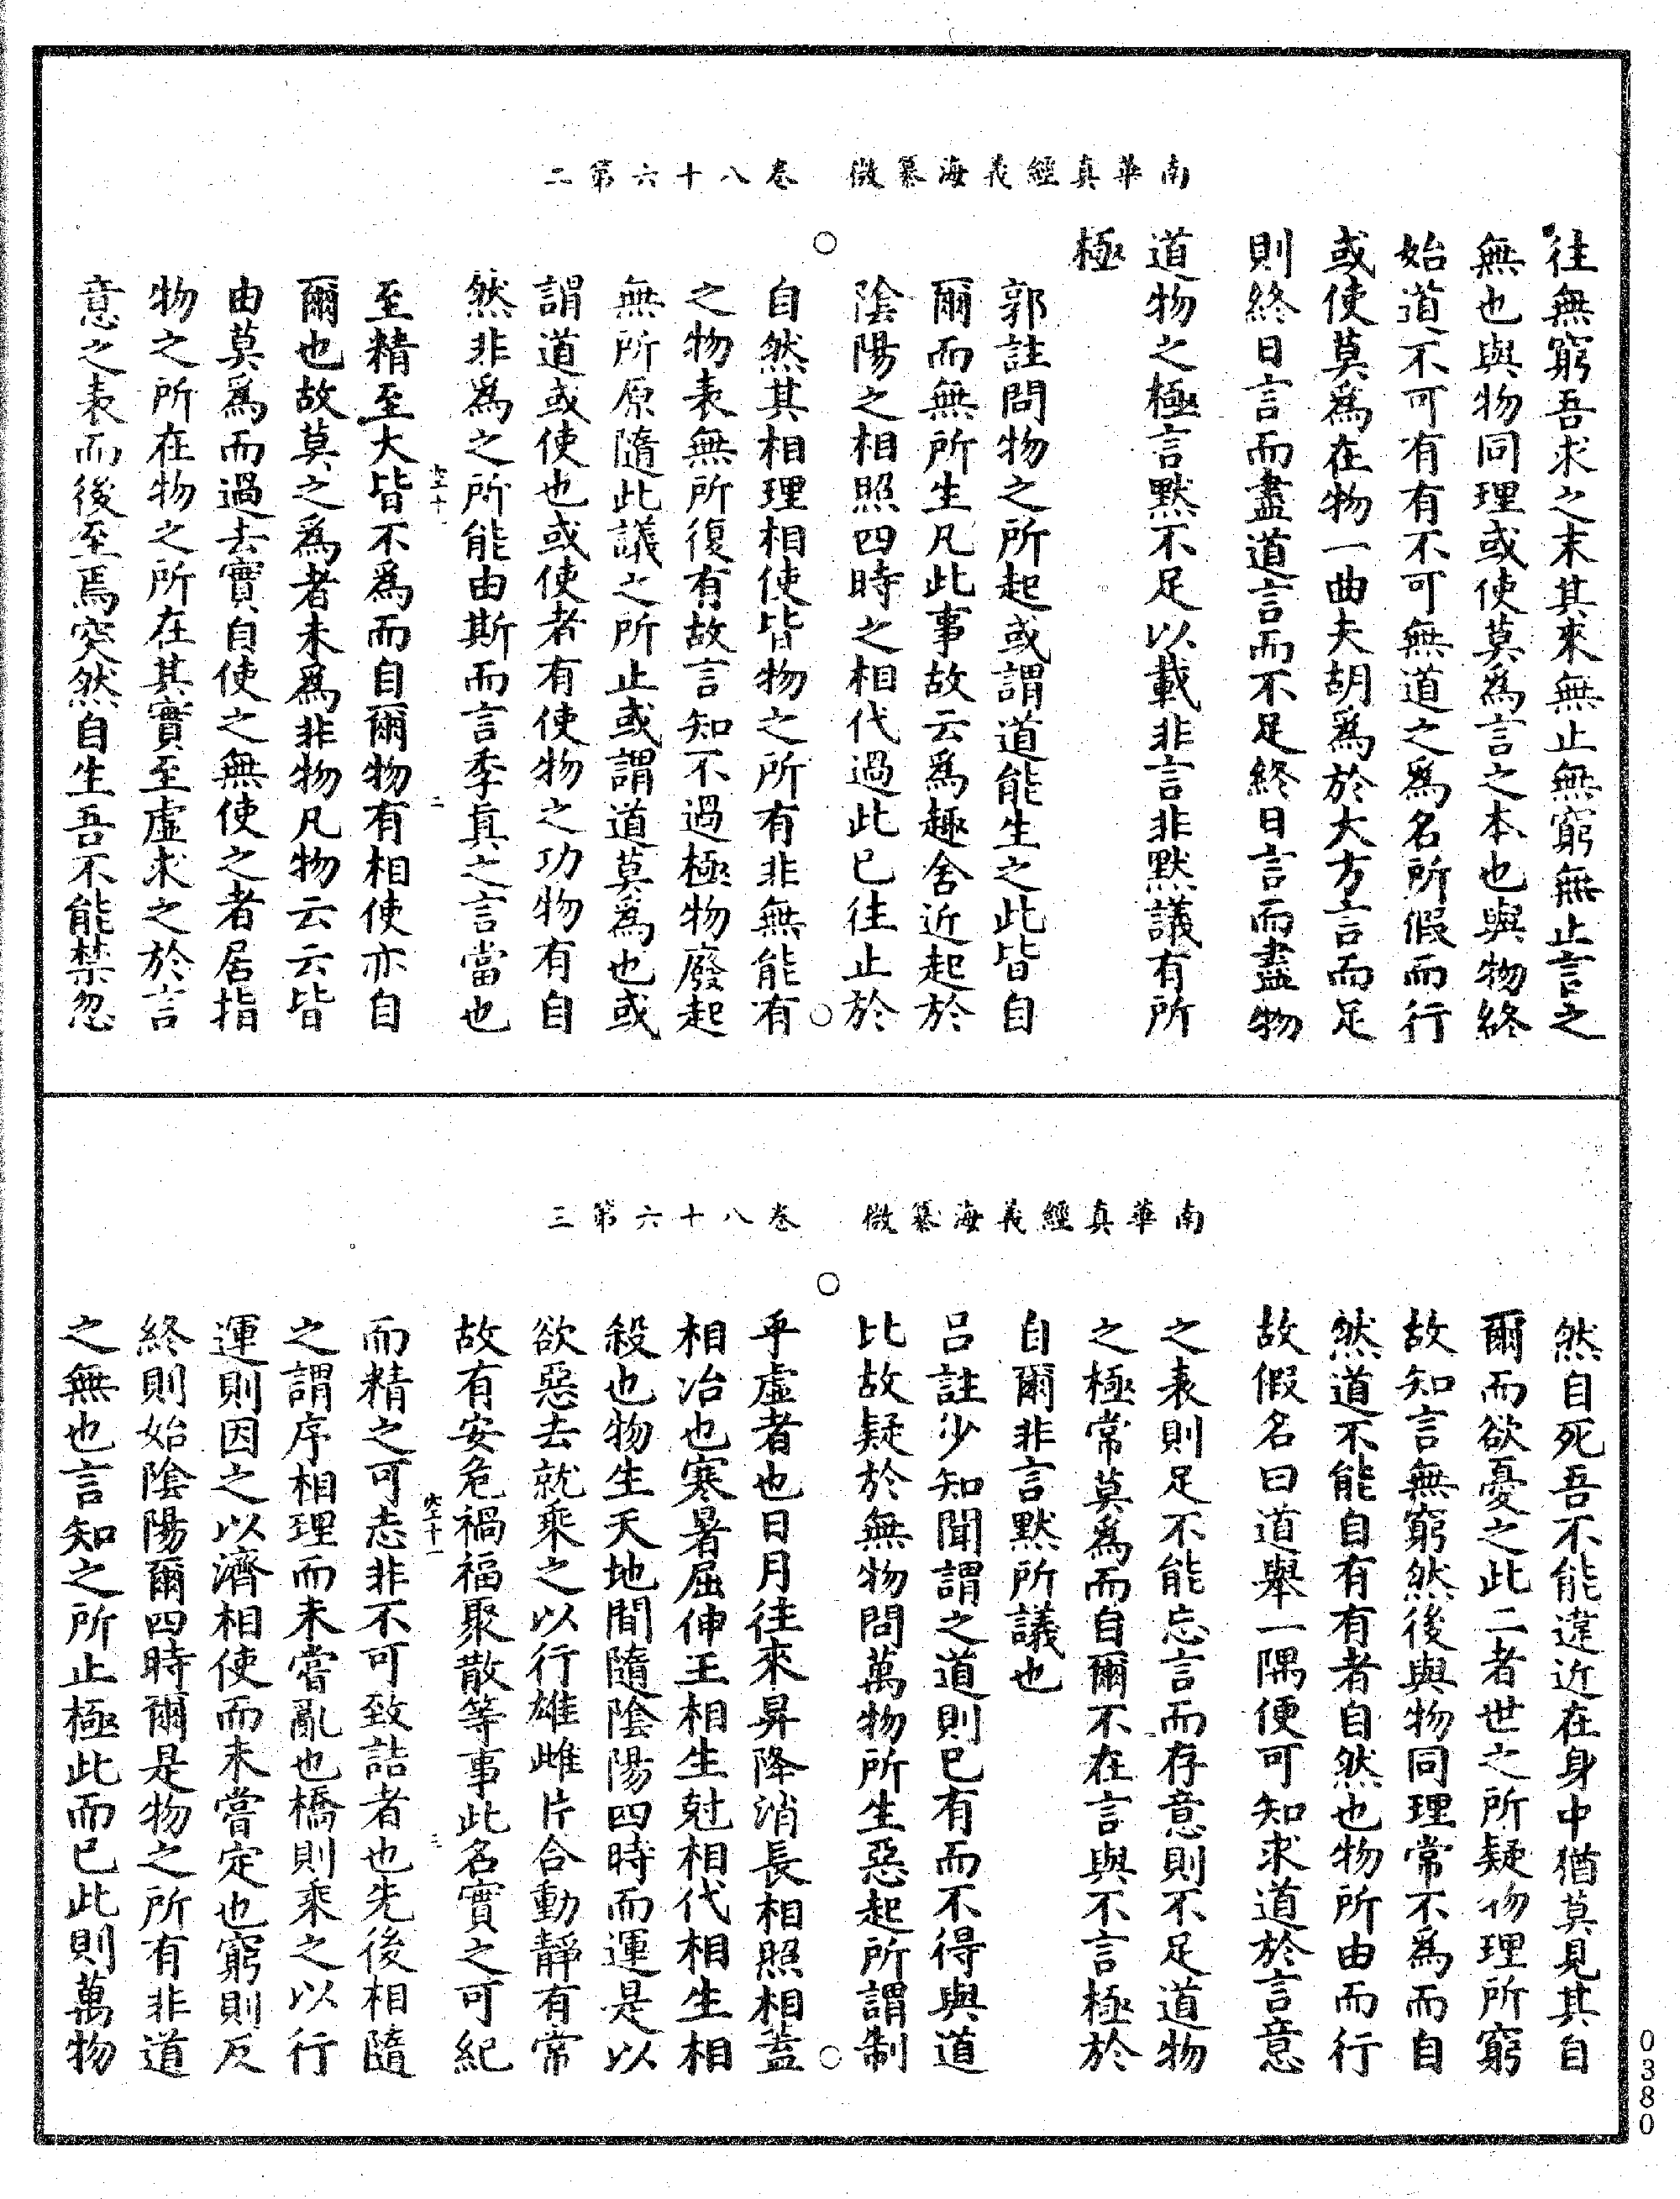 南華真經義海纂微　卷八十六第二
往無窮吾求之末其來無止無窮無止言之
無也與物同理或使莫爲言之本也與物終
始道不可有有不可無道之爲名所假而行
或使莫爲在物一曲夫胡爲於大方言而足
則終日言而盡道言而不足終日言而盡物
道物之極言默不足以載非言非默議有所
極
郭註問物之所起或謂道能生之此皆自
爾而無所生凡此事故云爲趣舍近起於
陰陽之相照四時之相代過此已往止於
自然其相理相使皆物之所有非無能有
之物表無所復有故言知不過極物廢起
無所原隨此議之所止或謂道莫爲也或
謂道或使也或使者有使物之功物有自
然非爲之所能由斯而言季真之言當也
至精至大皆不爲而自爾物有相使亦自
爾也故莫之爲者未爲非物凡物云云皆
由莫爲而過去實自使之無使之者居指
物之所在物之所在其實至虛求之於言
意之表而後至焉突然自生吾不能禁忽
南華真經義海纂微　卷八十六第三
然自死吾不能違近在身中猶莫見其自
爾而欲憂之此二者世之所疑物理所窮
故知言無窮然後與物同理常不爲而自
然道不能自有有者自然也物所由而行
故假名曰道舉一隅便可知求道於言意
之表則足不能忘言而存意則不足道物
之極常莫爲而自爾不在言與不言極於
自爾非言默所議也
呂註少知聞謂之道則已有而不得與道
比故疑於無物問萬物所生惡起所謂制
乎虛者也日月往來昇降消長相照相蓋
相治也寒暑屈伸王相生尅相代相生相
殺也物生天地間隨陰陽四時而運是以
欲惡去就乘之以行雄雌片合動靜有常
故有安危禍福聚散等事此名實之可紀
而精之可志非不可致詰者也先後相隨
之謂序相理而未嘗亂也橋則乘之以行
運則因之以濟相使而未嘗定也窮則反
終則始陰陽爾四時爾是物之所有非道
之無也言知之所止極此而已此則萬物
0380